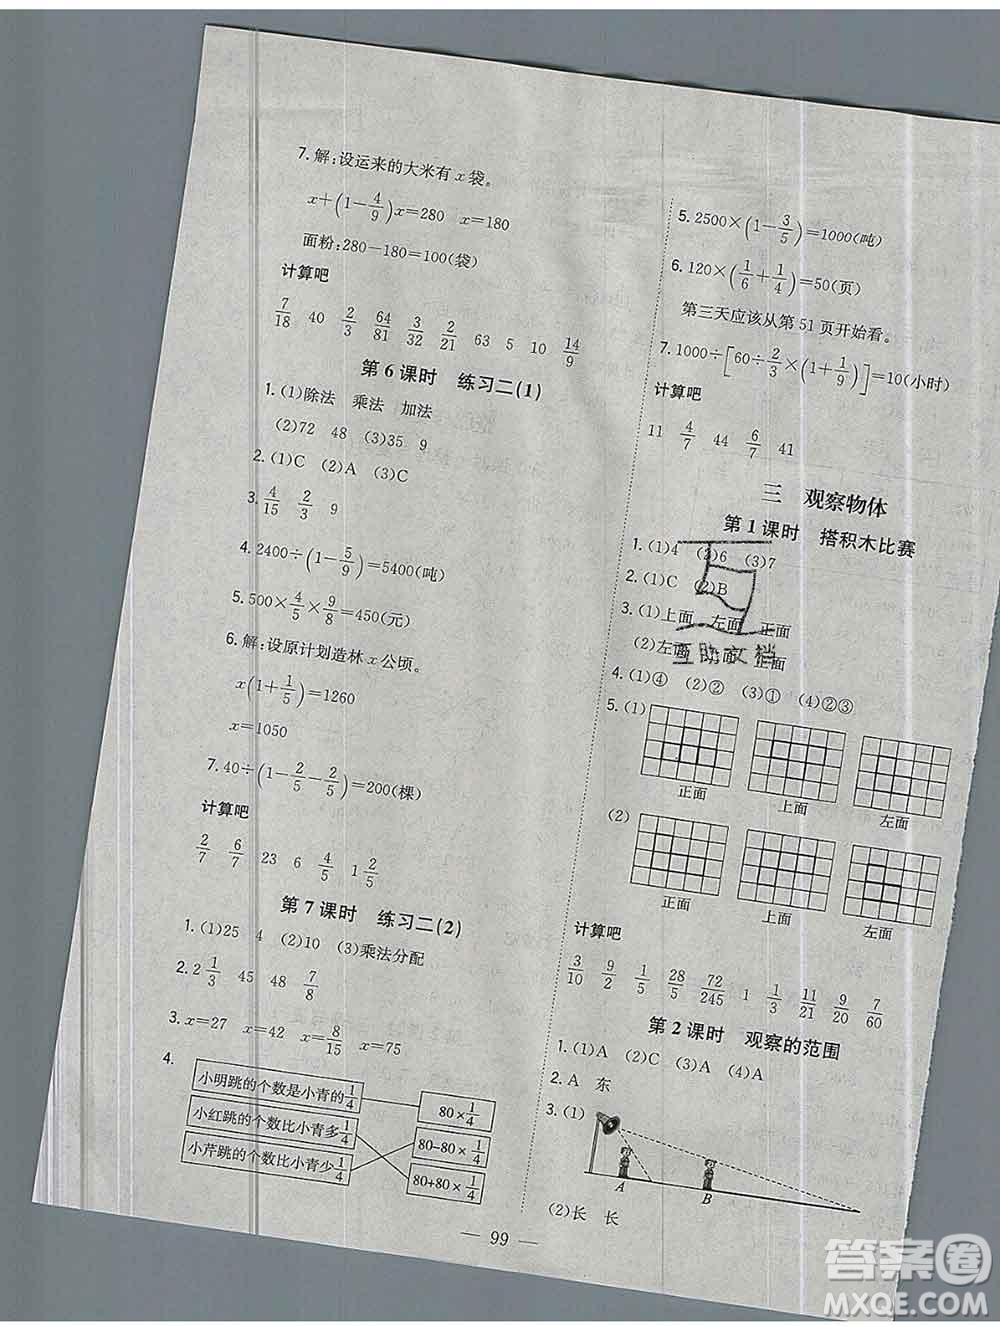 7. 解：设运来的大米有 x 袋。
x+(1-4/9)x=280 x=180
面粉：280-180=100(袋)
计算吧
7/18 40 2/3 64/81 3/32 2/21 63 5 10 14/9
第 6 课时 练习二(1)
1. (1)除法 乘法 加法
(2)72 48 (3)35 9
2. (1)C (2)A (3)C
3. 4/15 2/3 9
4. 2400÷(1-5/9)=5400(吨)
5. 500×4/5×9/8=450(元)
6. 解：设原计划造林 x 公顷。
x(1+1/5)=1260
x=1050
7. 40÷(1-2/5-2/5)=200(棵)
计算吧
2/7 6/7 23 6 4/5 1 2/5
第 7 课时 练习二(2)
1. (1)25 4 (2)10 (3)乘法分配
2. 2 1/3 45 48 7/8
3. x=27 x=42 x=8/15 x=75
4.
小明跳的个数是小青的1/4
小红跳的个数比小青多1/4
小芹跳的个数比小青少1/4
80×1/4
80-80×1/4
80+80×1/4
5. 2500×(1-3/5)=1000(吨)
6. 120×(1/6+1/4)=50(页)
第三天应该从第 51 页开始看。
7. 1000÷[60÷2/3×(1+1/9)]=10(小时)
计算吧
11 4/7 44 6/7 41
三 观察物体
第 1 课时 搭积木比赛
1. (1)4 (2)6 (3)7
2. (1)C (2)B
3. (1)上面 左面 正面
(2)左面 上面 正面
互助文档
4. (1)④ (2)② (3)① (4)②③
5. (1)
正面 上面 左面
(2)
正面 上面 左面
计算吧
3/10 9/2 1/5 28/5 72/245 1 1/3 11/21 9/20 7/60
第 2 课时 观察的范围
1. (1)A (2)C (3)A (4)A
2. A 东
3. (1)
A B
(2)长 长
— 99 —
答案圈
MXQE.COM